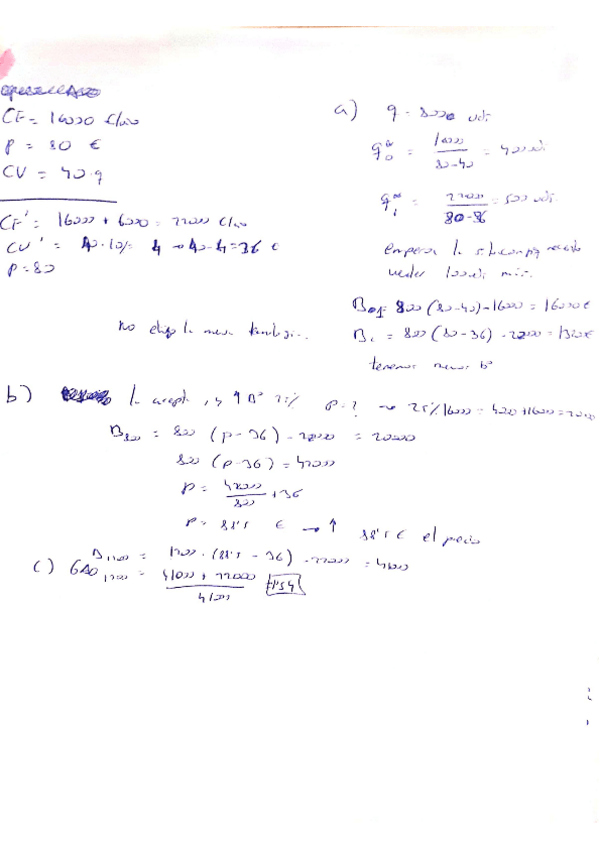 CF = 16000 €/año
p = 80 €
CV = 40·q
CF' = 16000 + 6000 = 22000 €/año
CV' = 40·10% = 4 → 40-4 = 36 €
p = 80
No elijo la nueva
a) q = 800 uds
q₀* = 16000 / (80-40) = 400 uds
q₁* = 22000 / (80-36) = 500 uds.
vender 100 uds más.
B₀ = 800 (80-40) - 16000 = 16000 €
B₁ = 800 (80-36) - 22000 = 13200 €
tenemos menor bº
b) la acepto, si ↑ Bº 25% p = ? → 25% 16000 = 4000 + 16000 = 20000
B₈₀₀ = 800 (p - 36) - 22000 = 20000
800 (p-36) = 42000
p = 42000/800 + 36
p = 88'5 € → ↑ 88'5 € el precio
c) B₁₂₀₀ = 1200 · (88'5 - 36) - 22000 = 41000
GAO₁₂₀₀ = (41000 + 22000) / 41000 = 1'54